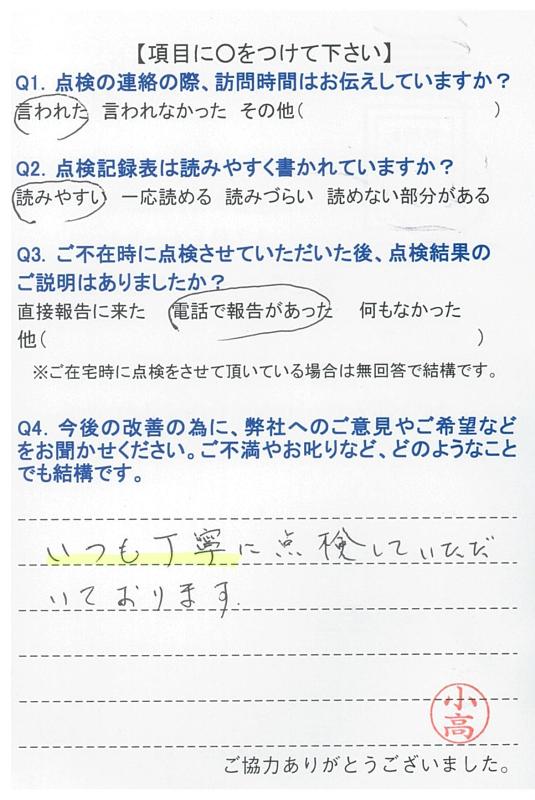 【項目に○をつけて下さい】
Q1. 点検の連絡の際、訪問時間はお伝えしていますか？
言われた 言われなかった その他( )
Q2. 点検記録表は読みやすく書かれていますか？
読みやすい 一応読める 読みづらい 読めない部分がある
Q3. ご不在時に点検させていただいた後、点検結果の
ご説明はありましたか？
直接報告に来た 電話で報告があった 何もなかった
他( )
※ご在宅時に点検をさせて頂いている場合は無回答で結構です。
Q4. 今後の改善の為に、弊社へのご意見やご希望など
をお聞かせください。ご不満やお叱りなど、どのようなこと
でも結構です。
いつも丁寧に点検していただ
いております.
小高
ご協力ありがとうございました。